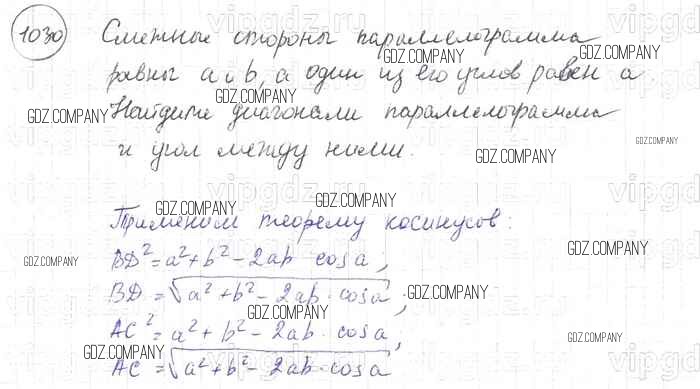 1030 Смежные стороны параллелограмма
равны a и b, а один из его углов равен a.
Найдите диагонали параллелограмма
и угол между ними.
Применим теорему косинусов:
BD² = a² + b² - 2ab cos a;
BD = √a² + b² - 2ab · cos a;
AC² = a² + b² - 2ab · cos a;
AC = √a² + b² - 2ab · cos a
GDZ.COMPANY
GDZ.COMPANY
GDZ.COMPANY
GDZ.COMPANY
GDZ.COMPANY
GDZ.COMPANY
GDZ.COMPANY
GDZ.COMPANY
GDZ.COMPANY
GDZ.COMPANY
GDZ.COMPANY
GDZ.COMPANY
GDZ.COMPANY
GDZ.COMPANY
vipgdz.ru